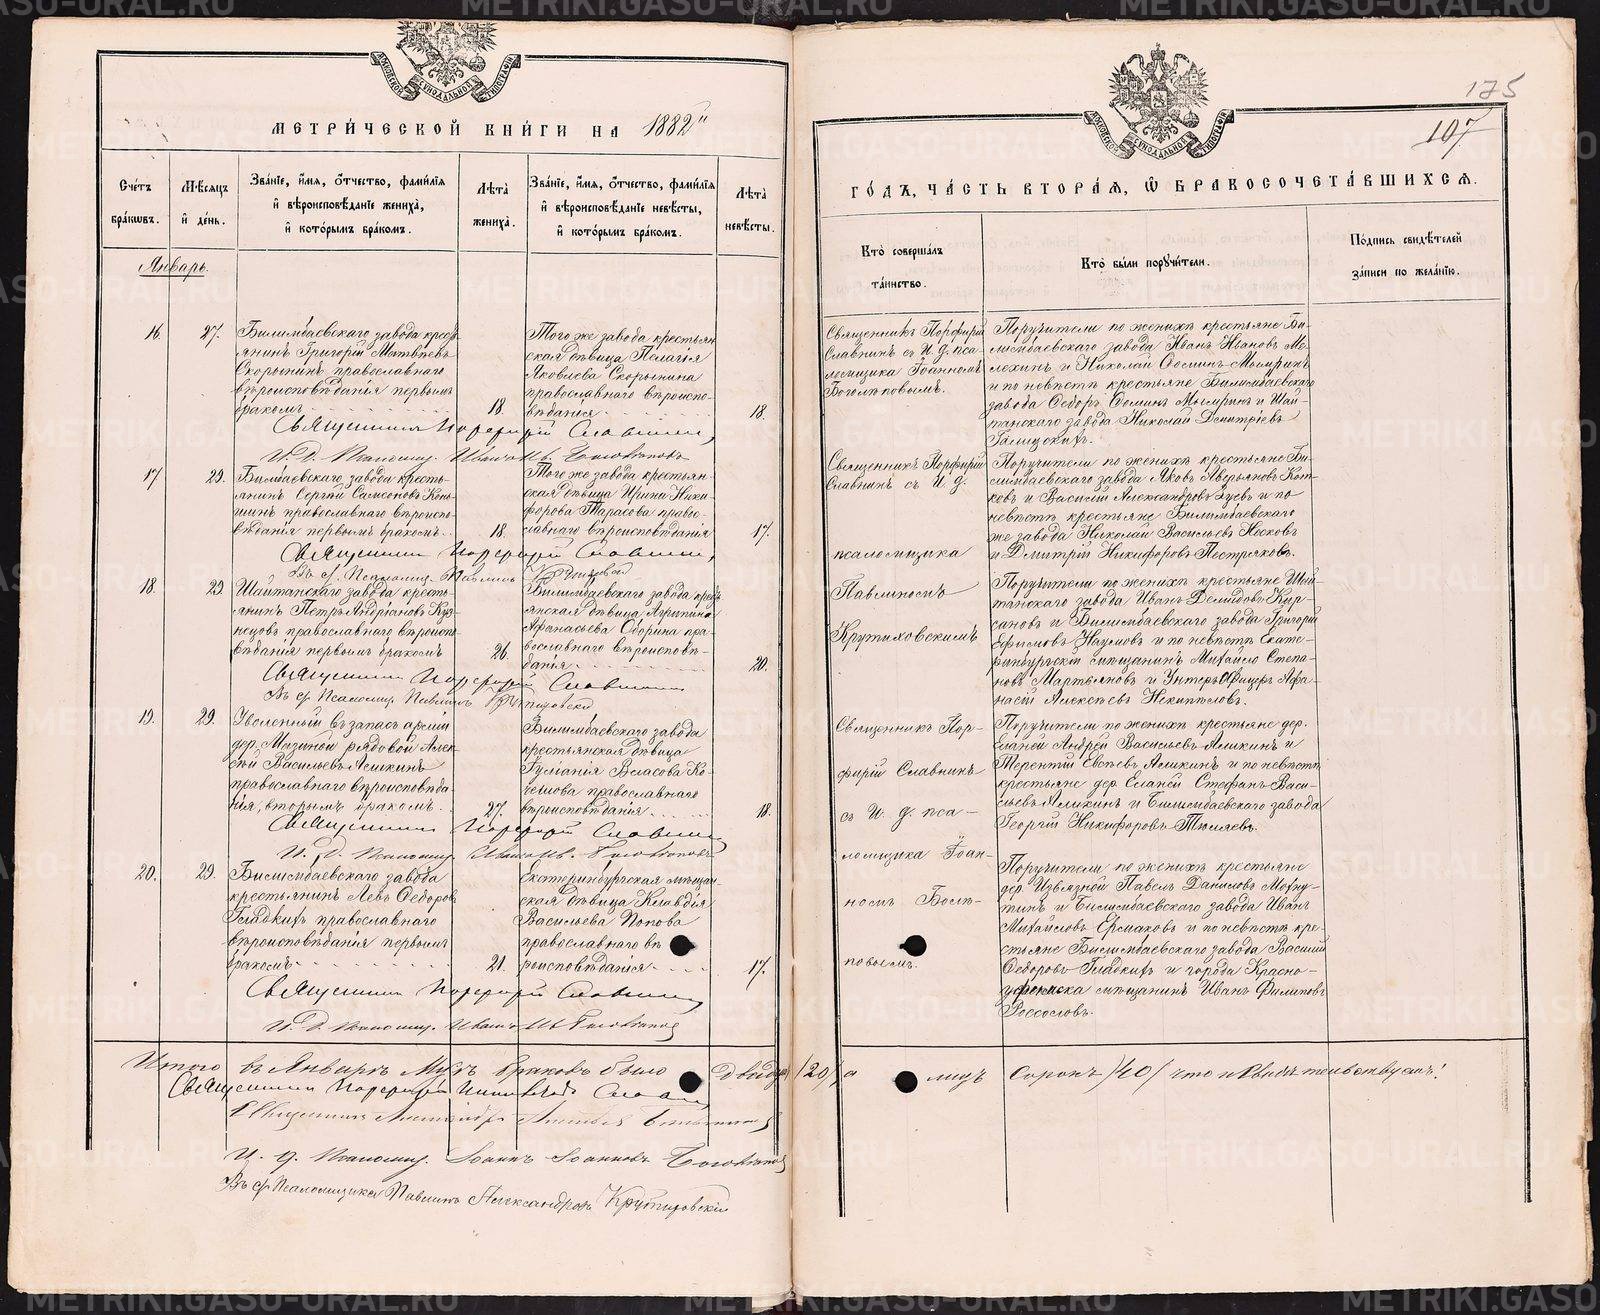 МЕТРИ́ЧЕСКОЙ КНИ́ГИ НА 1882й
Сче́тъ бра́ковъ.
Мѣ́сяцъ и҆ де́нь.
Зва́нїе, и҆́мя, о҆́тчество, фами́лїя и҆ вѣроисповѣ́данїе жениха̀, и҆ кото́рымъ бра́комъ.
Лѣ́та жениха̀.
Зва́нїе, и҆́мя, о҆́тчество, фами́лїя и҆ вѣроисповѣ́данїе невѣ́сты, и҆ кото́рымъ бра́комъ.
Лѣ́та невѣ́сты.
Январь.
16. 27.
Билимбаевскаго завода крест-
янинъ Григорій Матвѣевъ
Скорынинъ православнаго
вѣроисповѣданія первымъ
бракомъ 18.
Того же завода крестьян
ская дѣвица Пелагія
Яковлева Скорынина
православнаго вѣроиспо-
вѣданія 18.
Священникъ Порфирій Славнинъ,
И. Д. Псаломщ. Иванъ Ив. Боголѣповъ
17 29.
Билимбаевскаго завода кресть-
янинъ Сергѣй Самсоновъ Конь-
шинъ православнаго вѣроиспо-
вѣданія первымъ бракомъ 18.
Того же завода крестьян-
ская дѣвица Ирина Ники-
форова Тарасова право-
славнаго вѣроисповѣданія 17.
Священникъ Порфирій Славнинъ,
18. 29.
Шайтанскаго завода кресть-
янинъ Петръ Андріановъ Куз-
нецовъ православнаго вѣроиспо-
вѣданія первымъ бракомъ 26.
Билимбаевскаго завода крест-
янская дѣвица Агрипина
Афанасьева Оборина пра-
вославнаго вѣроисповѣ-
данія 20.
Священникъ Порфирій Славнинъ
19. 29.
Уволенный въ запасъ арміи
дер. Мазиной рядовой Алек-
сѣй Васильевъ Аликинъ
православнаго вѣроисповѣда-
нія, вторымъ бракомъ 27.
Билимбаевскаго завода
крестьянская дѣвица
Гуліанія Власова Ко-
чешова православнаго
вѣроисповѣданія 18.
Священникъ Порфирій Славнинъ
И. Д. Псаломщ. Иванъ Ив. Боголѣповъ
20. 29.
Билимбаевскаго завода
крестьянинъ Левъ Ѳедоровъ
Гладкихъ православнаго
вѣроисповѣданія первымъ
бракомъ 21.
Екатеринбургская мѣщан-
ская дѣвица Клавдія
Васильева Попова
православнаго вѣ
роисповѣданія 17.
Священникъ Порфирій Славнинъ
И. Д. Псаломщ. Иванъ Ив. Боголѣповъ
Итого въ Январѣ Мцѣ браковъ было двадца /20/
Священникъ Порфирій Славнинъ
И. д. Псаломщ. Іоаннъ Іоанновъ Боголѣповъ
Въ д. Псаломщика Павлинъ Александровъ Крутиховскій
175
107
ГО́ДЪ, ЧА́СТЬ ВТОРА́Я, Ѡ҆ БРАКОСОЧЕТА́ВШИХСЯ.
Кто̀ соверша́лъ та́инство.
Кто̀ бы́ли порꙋчи́тели.
По́дпись свидѣ́телей за́писи по жела́нїю.
Священникъ Порфирій
Славнинъ съ И. д. пса
ломщика Іоанномъ
Боголѣповымъ.
Поручители по женихѣ крестьяне Би-
лимбаевскаго завода Иванъ Ивановъ Ме-
лехинъ и Николай Ѳоминъ Мымринъ
и по невѣстѣ крестьяне Билимбаевскаго
завода Ѳедоръ Ѳоминъ Мымринъ и Шай-
танскаго завода Николай Дмитріевъ
Галицкихъ.
Священникъ Порфирій
Славнинъ съ И. д.
псаломщика
Павлиномъ
Крутиховскимъ
Поручители по женихѣ крестьяне Би-
лимбаевскаго завода Яковъ Аверьяновъ Кот-
ковъ и Василій Александровъ Зуевъ и по
невѣстѣ крестьяне Билимбаевскаго
же завода Николай Васильевъ Носковъ
и Дмитрій Никифоровъ Пестряковъ.
Поручители по женихѣ крестьяне Шай-
танскаго завода Иванъ Демидовъ Кир-
сановъ и Билимбаевскаго завода Григорій
Ефимовъ Наумовъ и по невѣстѣ Екате-
ринбургскій мѣщанинъ Михайло Степа-
новъ Мартьяновъ и Унтеръ Офицеръ Афа-
насій Алексѣевъ Некипѣловъ.
Священникъ Пор-
фирій Славнинъ
съ И. д. пса-
ломщика Іоан-
номъ Болѣ-
повымъ.
Поручители по женихѣ крестьяне дер.
Еланей Андрей Васильевъ Аликинъ и
Терентій Евсѣевъ Аликинъ и по невѣстѣ
крестьяне дер. Еланей Стефанъ Васи-
льевъ Аликинъ и Билимбаевскаго завода
Георгій Никифоровъ Тюляевъ.
Поручители по женихѣ крестьяне
дер. Извязной Павелъ Даниловъ Мохну-
тинъ и Билимбаевскаго завода Иванъ
Михайловъ Ермаковъ и по невѣстѣ кре-
стьяне Билимбаевскаго завода Василій
Ѳедоровъ Гладкихъ и города Красно-
уфимска мѣщанинъ Иванъ Филиповъ
Россословъ.
а лицъ Сорокъ /40/ что и свидѣтельствуемъ!